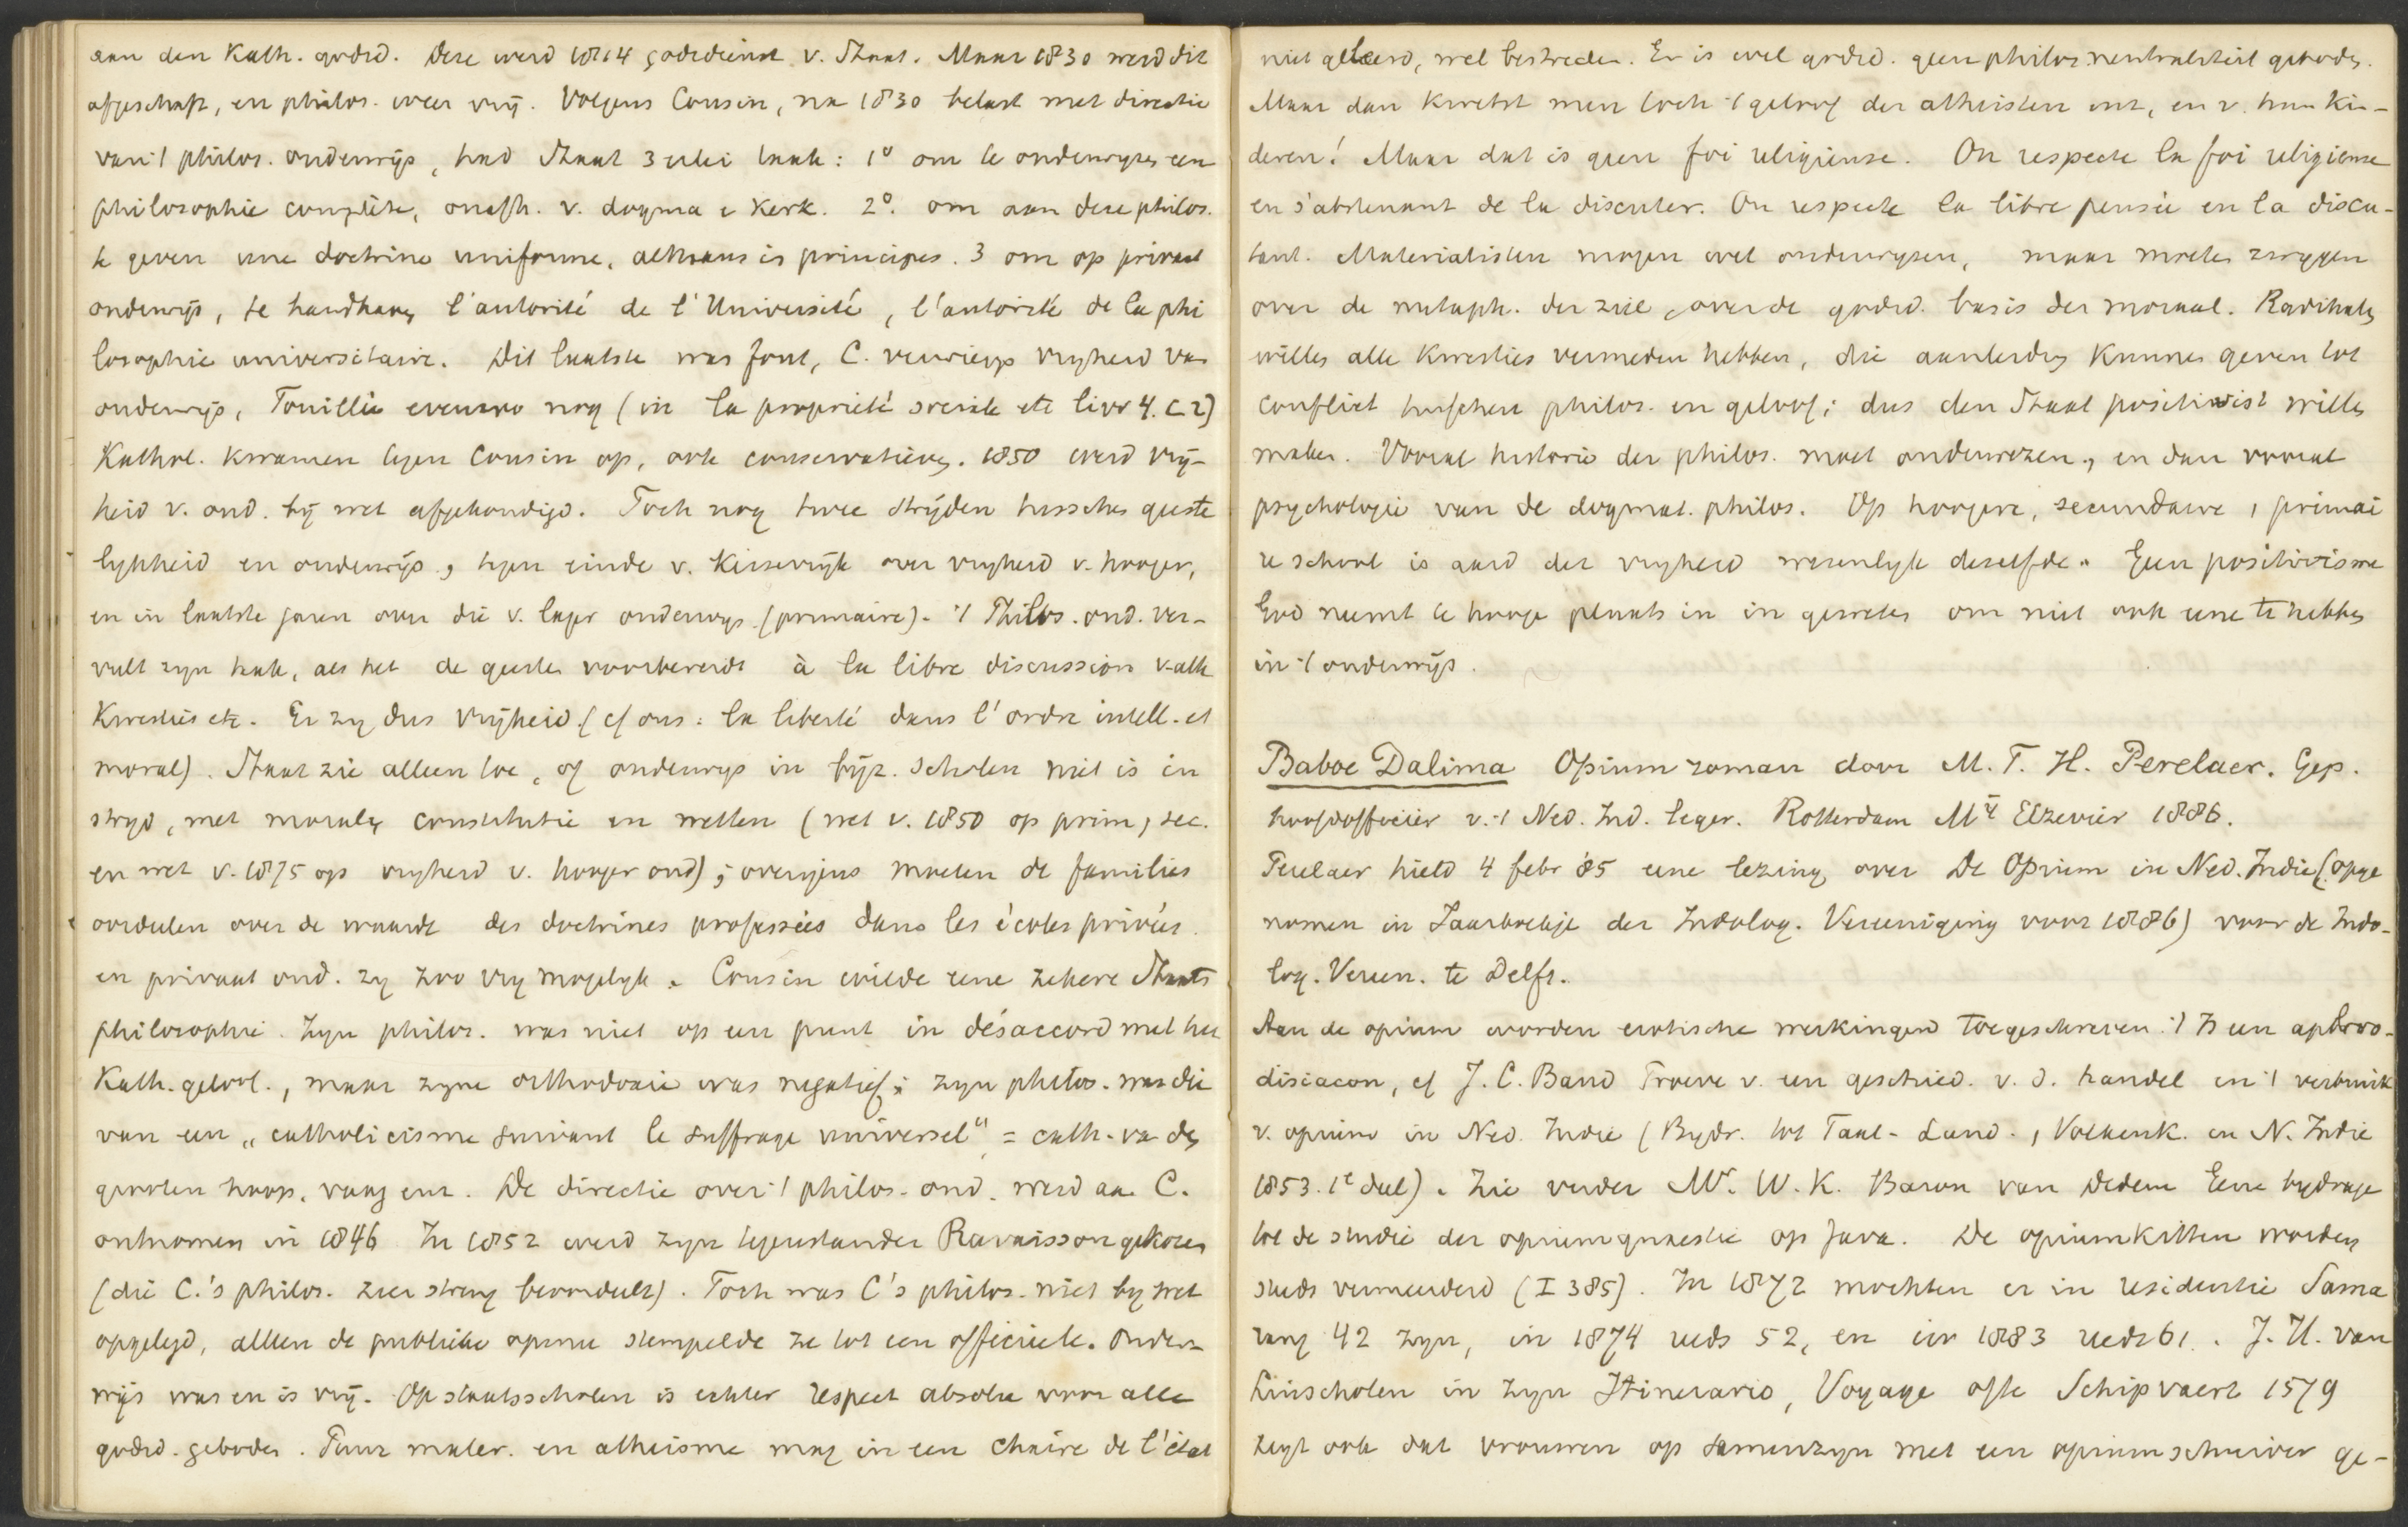 aan den Kath. godsd. Deze werd 1814 godsdienst v. Staat. Maar 1830 werd dit
afgeschaft, en philos. weer vrij. Volgens Cousin, na 1830 belast met directie
van 't philos. onderwijs, had Staat 3erlei taak: 1° om te onderwyzen een
philosophie complète, onafh. v. dogma e kerk. 2°. om aan deze philos.
te geven une doctrine uniforme, althans in principes. 3 om op privaat
onderwijs, te handhaven l'autorité de l'Université, l'autorité de la phi
losophie universitaire. Dit laatste was fout, C. verwierp vryheid van
onderwijs, Fouillée evenzoo nog (in La propriété sociale etc livr 4. c 2)
Kathol. kwamen tegen Cousin op, ook conservatieven. 1850 werd vrij-
heid v. ond. bij wet afgekondigd. Toch nog twee strijden tusschen geeste
lykheid en onderwijs, tegen einde v. Keizerrijk over vryheid v. hooger,
en in laatste jaren over die v. lager onderwys (primaire). 't Philos. ond. ver-
vult zyn taak, als het de geesten voorbereidt à la libre discussion v. alle
kwesties etc. Er zy dus vrijheid (cf ons: la liberté dans l'ordre intell. et
moral). Staat zie alleen toe, of onderwys in byz. scholen niet is in
stryd, met moraal, constitutie en wetten (wet v. 1850 op prim, sec.
en wet v. 1875 op vryheid v. hooger ond); overigens moeten de families
oordeelen over de waarde des doctrines professées dans les écoles privées.
en privaat ond. zy zoo vry mogelyk. Cousin wilde eene zekere Staats
philosophie. Zyn philos. was niet op een punt in désaccord met het
Kath. geloof, maar zyne orthodoxie was negatief; zyn philos. was die
van een „catholicisme suivant le suffrage universel" = cath. van den
grooten hoop, vaag enz. De directie over 't philos. ond. werd aan C.
ontnomen in 1846 In 1852 werd zyn tegenstander Ravaisson gekozen
(die C.'s philos. zeer streng beoordeelt). Toch was C's philos. niet by wet
opgelegd, alleen de publieke opinie stempelde ze tot een officieele. Onder-
wijs was en is vrij. Op staatsscholen is echter respect absolu voor alle
godsd. geboden. Puur mater. en atheisme mag in een chaire de l'état
niet geleerd, wel bestreden. Er is wel godsd. geen philos. neutraliteit geboden.
Maar dan kwetst men toch 't geloof der atheisten enz, en v. hun kin-
deren! Maar dat is geen foi religieuse. On respecte la foi religieuse
en s'abstenant de la discuter. On respecte la libre pensée en la discu-
tant. Materialisten mogen wel onderwyzen, maar moeten zwygen
over de metaph. der ziel, over de godsd. basis der moraal. Radikalen
willen alle kwesties vermeden hebben, die aanleiding kunnen geven tot
conflict tusschen philos. en geloof; dus den Staat positivist willen
maken. Vooral historie der philos. moet onderwezen, en dan vooral
psychologie van de dogmat. philos. Op hoogere, secundaire, primai
re school is aard der vryheid wezenlyk dezelfde. Geen positivisme
God neemt te hooge plaats in in geweten om niet ook eene te hebben
in 't onderwijs.
Baboe Dalima Opiumroman door M. T. H. Perelaer. Gep.
hoofdofficier v. 't Ned. Ind. leger. Rotterdam Mij Elzevier 1886.
Perelaer hield 4 febr '85 eene lezing over De Opium in Ned. Indie (opge
nomen in Jaarboekje der Indolog. Vereeniging voor 1886) voor de Indo-
log. Vereen. te Delft.
Aan de opium worden erotische werkingen toegeschreven. 't Is een aphro-
disiacon, cf J. C. Baud Proeve v. een geschied. v. d. handel en 't verbruik
v. opium in Ned. Indie (Bydr. tot Taal- Land-, Volkenk. in N. Indie
1853. 1e deel). Zie verder Mr. W. K. Baron van Dedem Eene bydrage
tot de studie der opiumquaestie op Java. De opiumkitten worden
steds vermeerderd (I 385). In 1872 mochten er in residentie Sama
rang 42 zyn, in 1874 reeds 52, en in 1883 reeds 61. J. H. van
Linschoten in zyn Itinerario, Voyage ofte Schipvaert 1579
zegt ook dat vrouwen op samenzyn met een opiumschuiver ge-